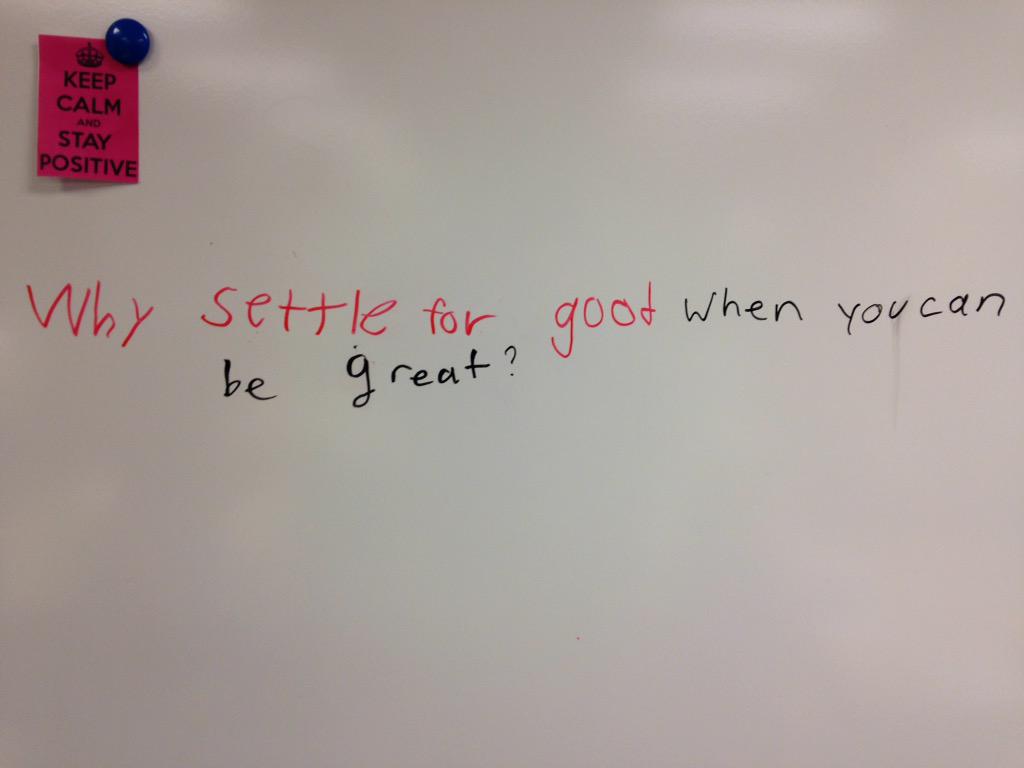 KEEP
CALM
AND
STAY
POSITIVE
Why settle for good when you can
be great?